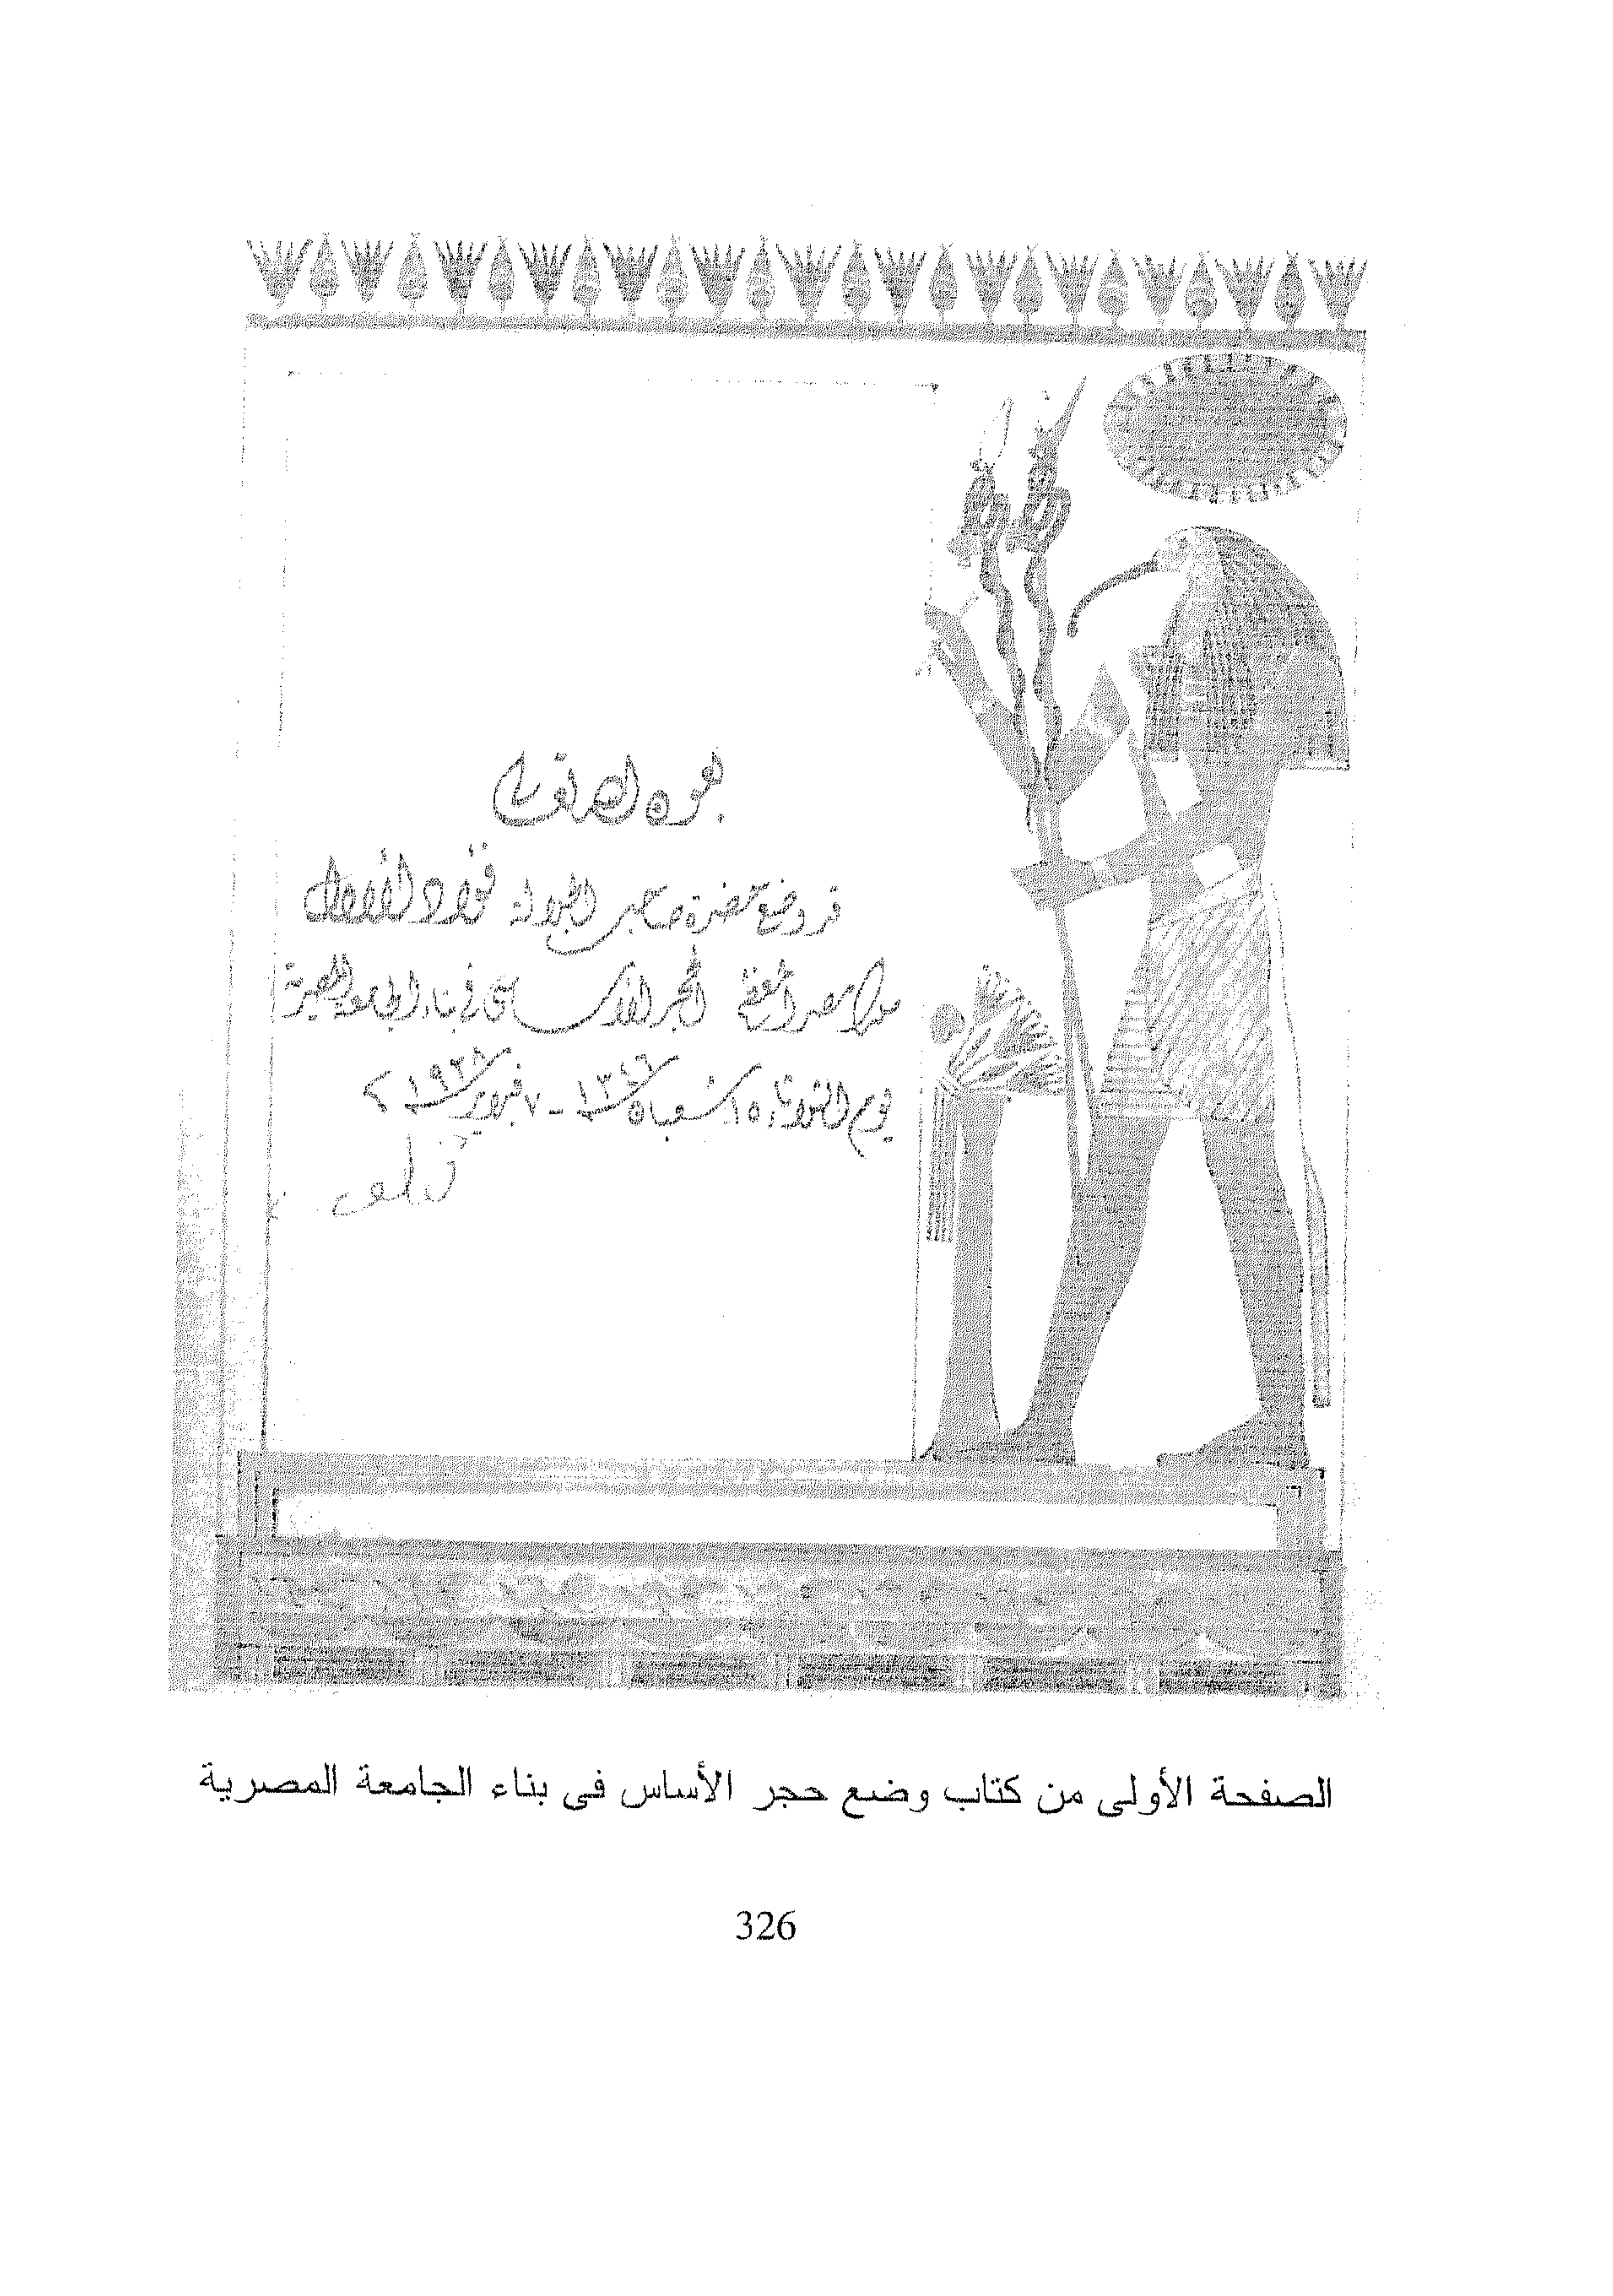 بعون الله تعالى
قد وضع حضرة صاحب الجلالة فؤاد الأول
ملك مصر المعظم الحجر الأساسى فى بناء الجامعة المصرية
يوم الثلاثاء ١٥ شعبان ١٣٤٦ - ٧ فبراير ١٩٢٨
الصفحة الأولى من كتاب وضع حجر الأساس فى بناء الجامعة المصرية
326